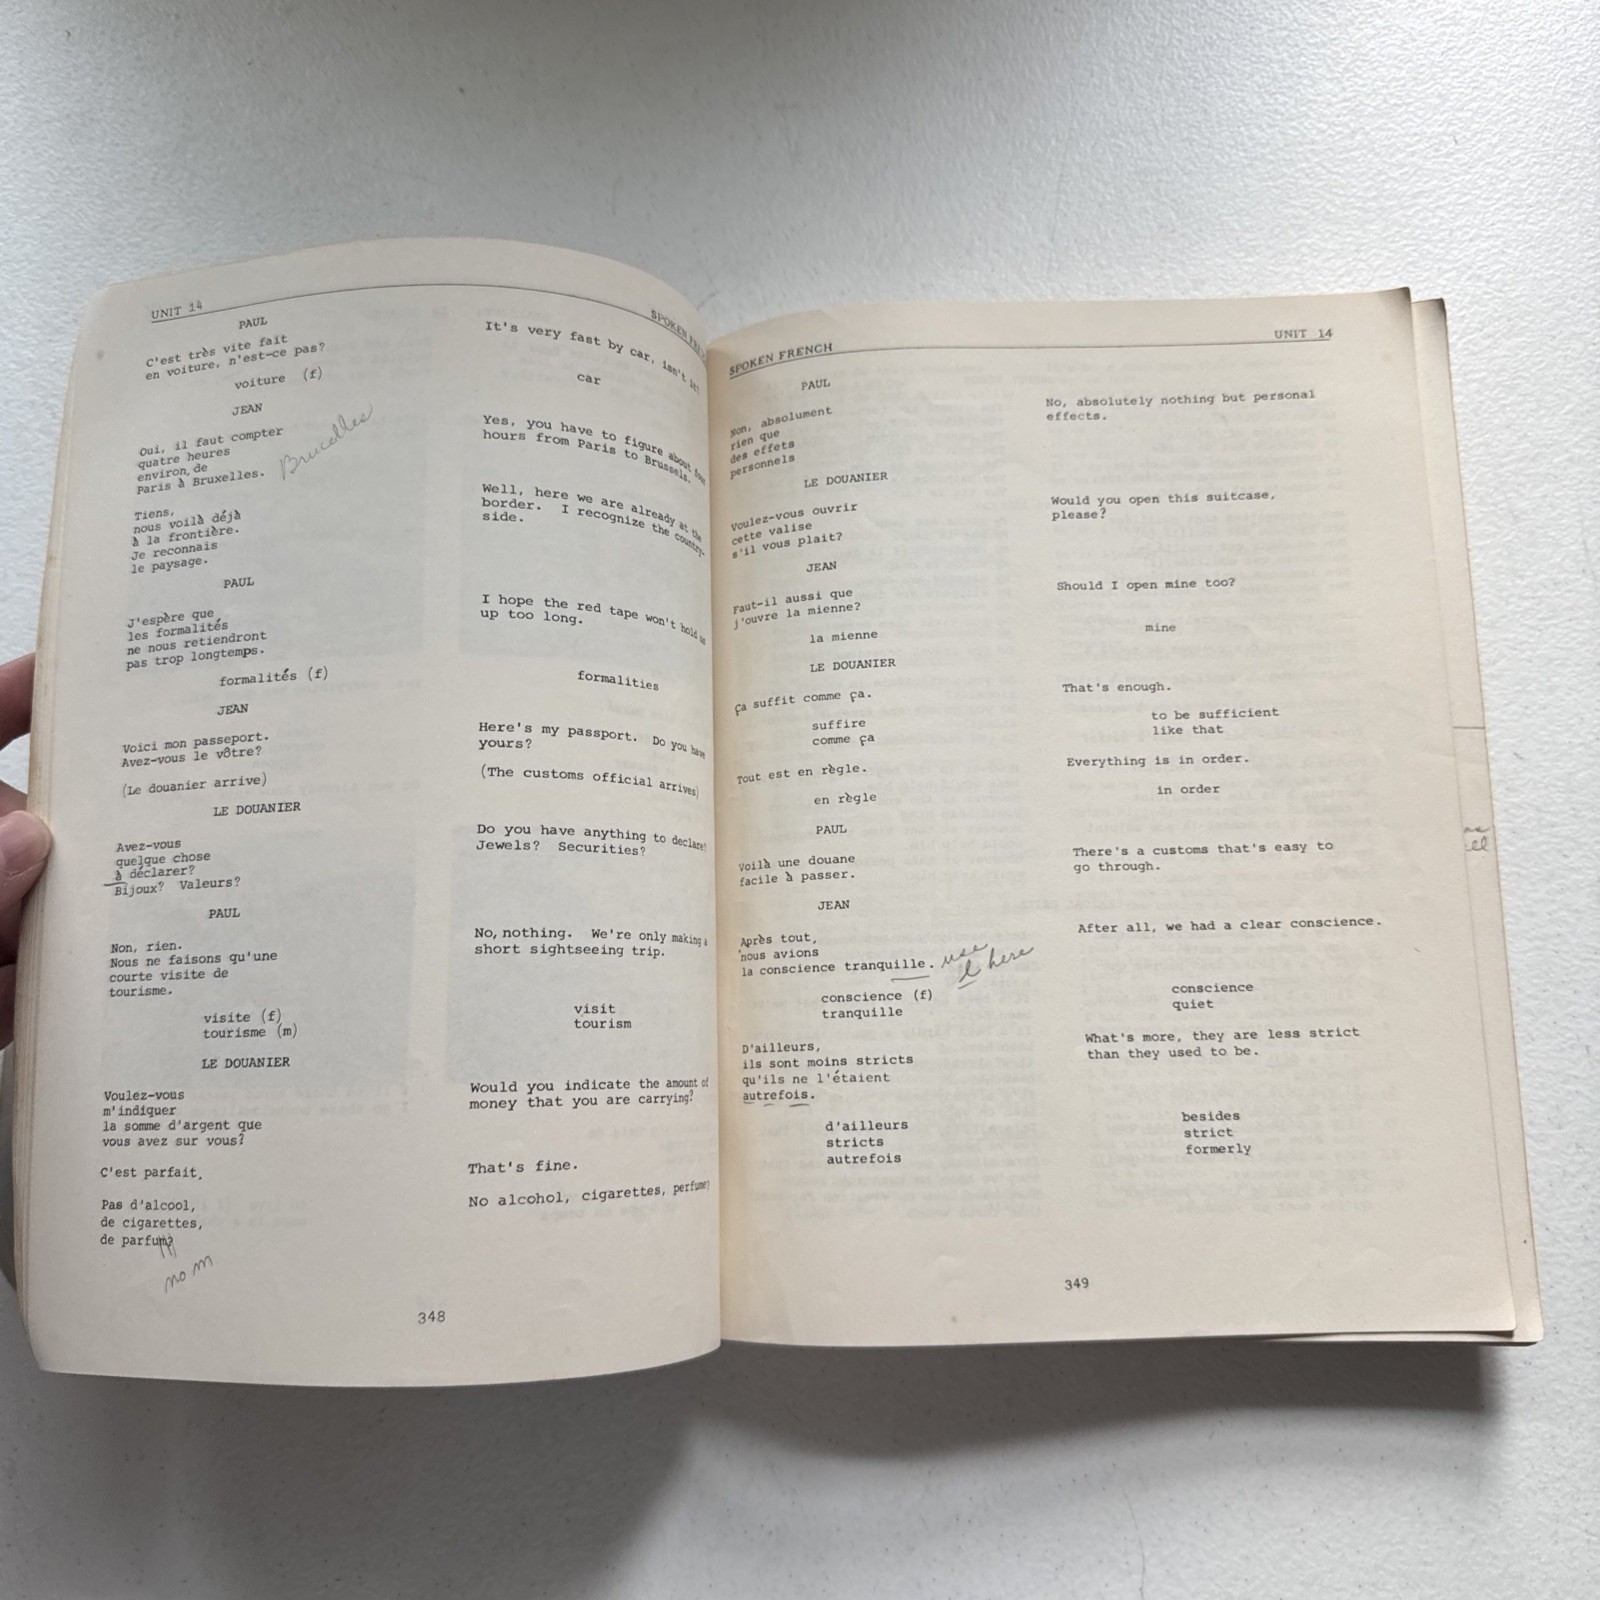 UNIT 14
PAUL
C'est très vite fait
en voiture, n'est-ce pas?
voiture (f)
JEAN
Oui, il faut compter
quatre heures
environ, de
Paris à Bruxelles.
Brucelles
Tiens,
nous voilà déjà
à la frontière.
Je reconnais
le paysage.
PAUL
J'espère que
les formalités
ne nous retiendront
pas trop longtemps.
formalités (f)
JEAN
Voici mon passeport.
Avez-vous le vôtre?
(Le douanier arrive)
LE DOUANIER
Avez-vous
quelque chose
à déclarer?
Bijoux? Valeurs?
PAUL
Non, rien.
Nous ne faisons qu'une
courte visite de
tourisme.
visite (f)
tourisme (m)
LE DOUANIER
Voulez-vous
m'indiquer
la somme d'argent que
vous avez sur vous?
C'est parfait,
Pas d'alcool,
de cigarettes,
de parfum?
no m
SPOKEN
It's very fast by car, isn't it?
car
Yes, you have to figure about four
hours from Paris to Brussels.
Well, here we are already at the
border. I recognize the country-
side.
I hope the red tape won't hold us
up too long.
formalities
Here's my passport. Do you have
yours?
(The customs official arrives)
Do you have anything to declare?
Jewels? Securities?
No, nothing. We're only making a
short sightseeing trip.
visit
tourism
Would you indicate the amount of
money that you are carrying?
That's fine.
No alcohol, cigarettes, perfume?
348
SPOKEN FRENCH
UNIT 14
PAUL
Non, absolument
rien que
des effets
personnels
LE DOUANIER
Voulez-vous ouvrir
cette valise
s'il vous plait?
JEAN
Faut-il aussi que
j'ouvre la mienne?
la mienne
LE DOUANIER
Ça suffit comme ça.
suffire
comme ça
Tout est en règle.
en règle
PAUL
Voilà une douane
facile à passer.
JEAN
Après tout,
nous avions
la conscience tranquille.
use
l here
conscience (f)
tranquille
D'ailleurs,
ils sont moins stricts
qu'ils ne l'étaient
autrefois.
d'ailleurs
stricts
autrefois
No, absolutely nothing but personal
effects.
Would you open this suitcase,
please?
Should I open mine too?
mine
That's enough.
to be sufficient
like that
Everything is in order.
in order
There's a customs that's easy to
go through.
After all, we had a clear conscience.
conscience
quiet
What's more, they are less strict
than they used to be.
besides
strict
formerly
349